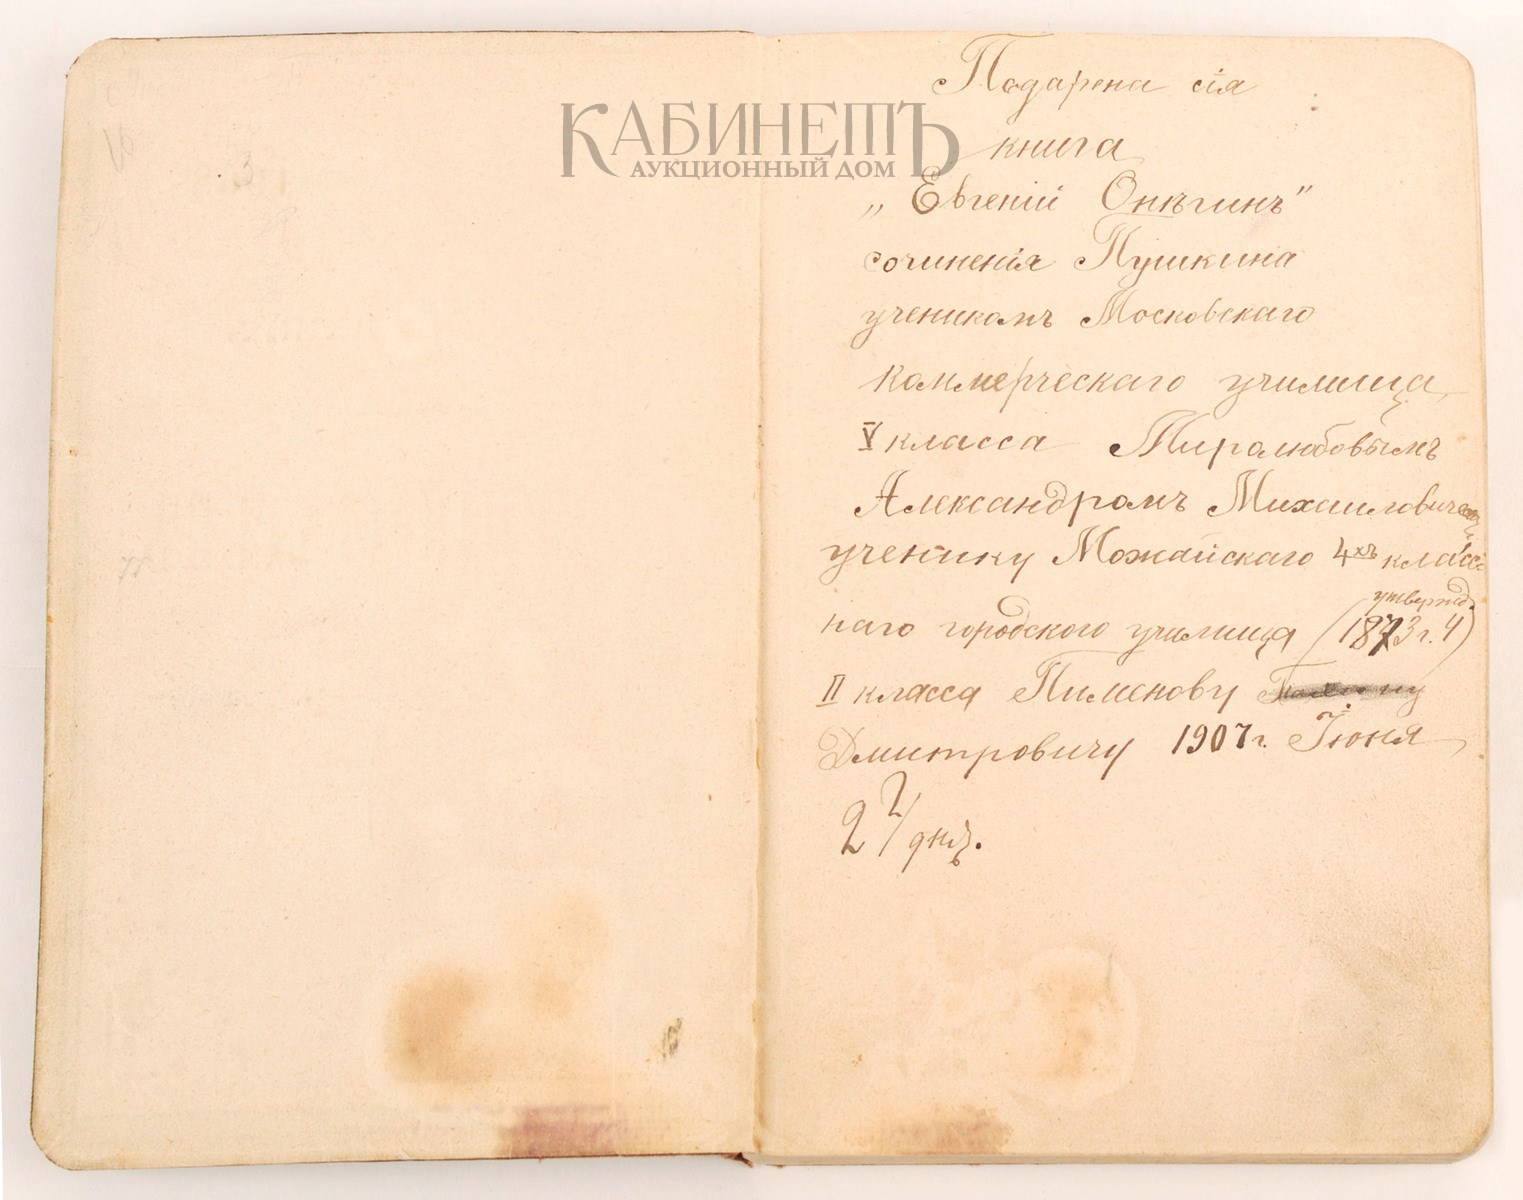 КАБИНЕТЪ
АУКЦИОННЫЙ ДОМ
Подарена сія
книга
„Евгеній Онѣгинъ"
сочиненія Пушкина
ученикомъ Московскаго
коммерческаго училища
V класса Миролюбовымъ
Александромъ Михаиловичем
ученику Можайскаго 4хъ класс
утвержд.
наго городского училища (1873 г. Ч)
II класса Пименову
Дмитровичу 1907 г. Іюня
2 2/ дня.